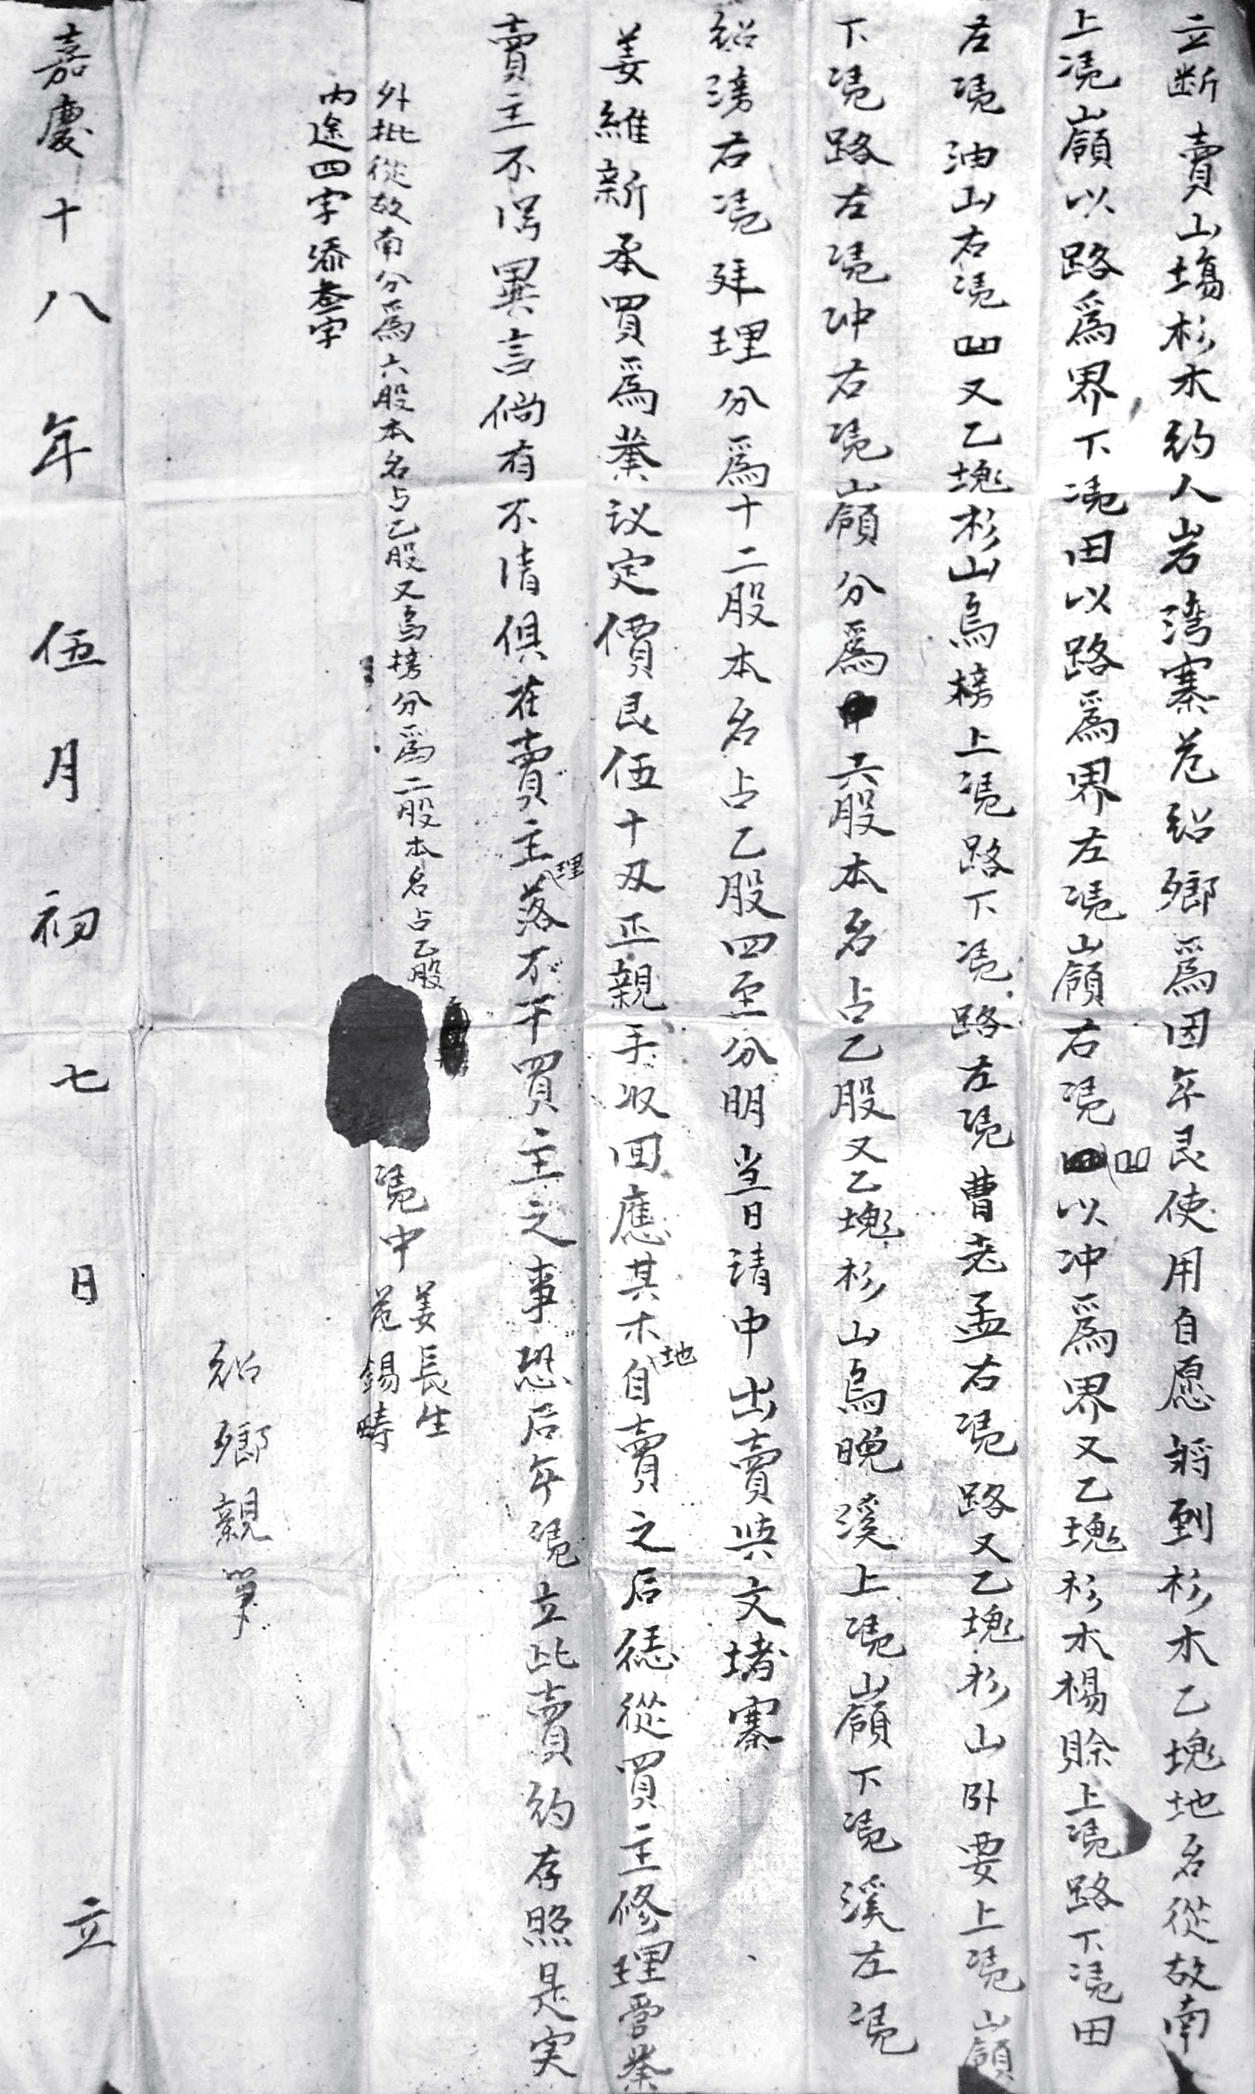 立断賣山塲杉木約人岩湾寨范紹鄉爲因年艮使用自愿將到杉木乙塊地名從故南
上凴嶺以路爲界下凴田以路爲界左凴嶺右凴凹以冲爲界又乙塊杉木楊賒上凴路下凴田
左凴油山右凴凹又乙塊杉山烏榜上凴路下凴路左凴曹老孟右凴路又乙塊杉山卧要上凴嶺
下凴路左凴冲右凴嶺分爲六股本名占乙股又乙塊杉山烏晚溪上凴嶺下凴溪左凴
紹滂右凴廷理分爲十二股本名占乙股四至分明当日請中出賣與文堵寨
姜維新承買爲業议定價艮伍十刄正親手收回應其木地自賣之后憑從買主修理管業
賣主不得異言倘有不清俱在賣主理落不干買主之事恐后年凴立此賣約存照是实
外批從故南分爲六股本名占乙股又烏榜分爲二股本名占乙股
内途四字添叁字
凴中 姜長生
范錫疇
紹鄉親筆
嘉慶十八年 伍月初七日 立